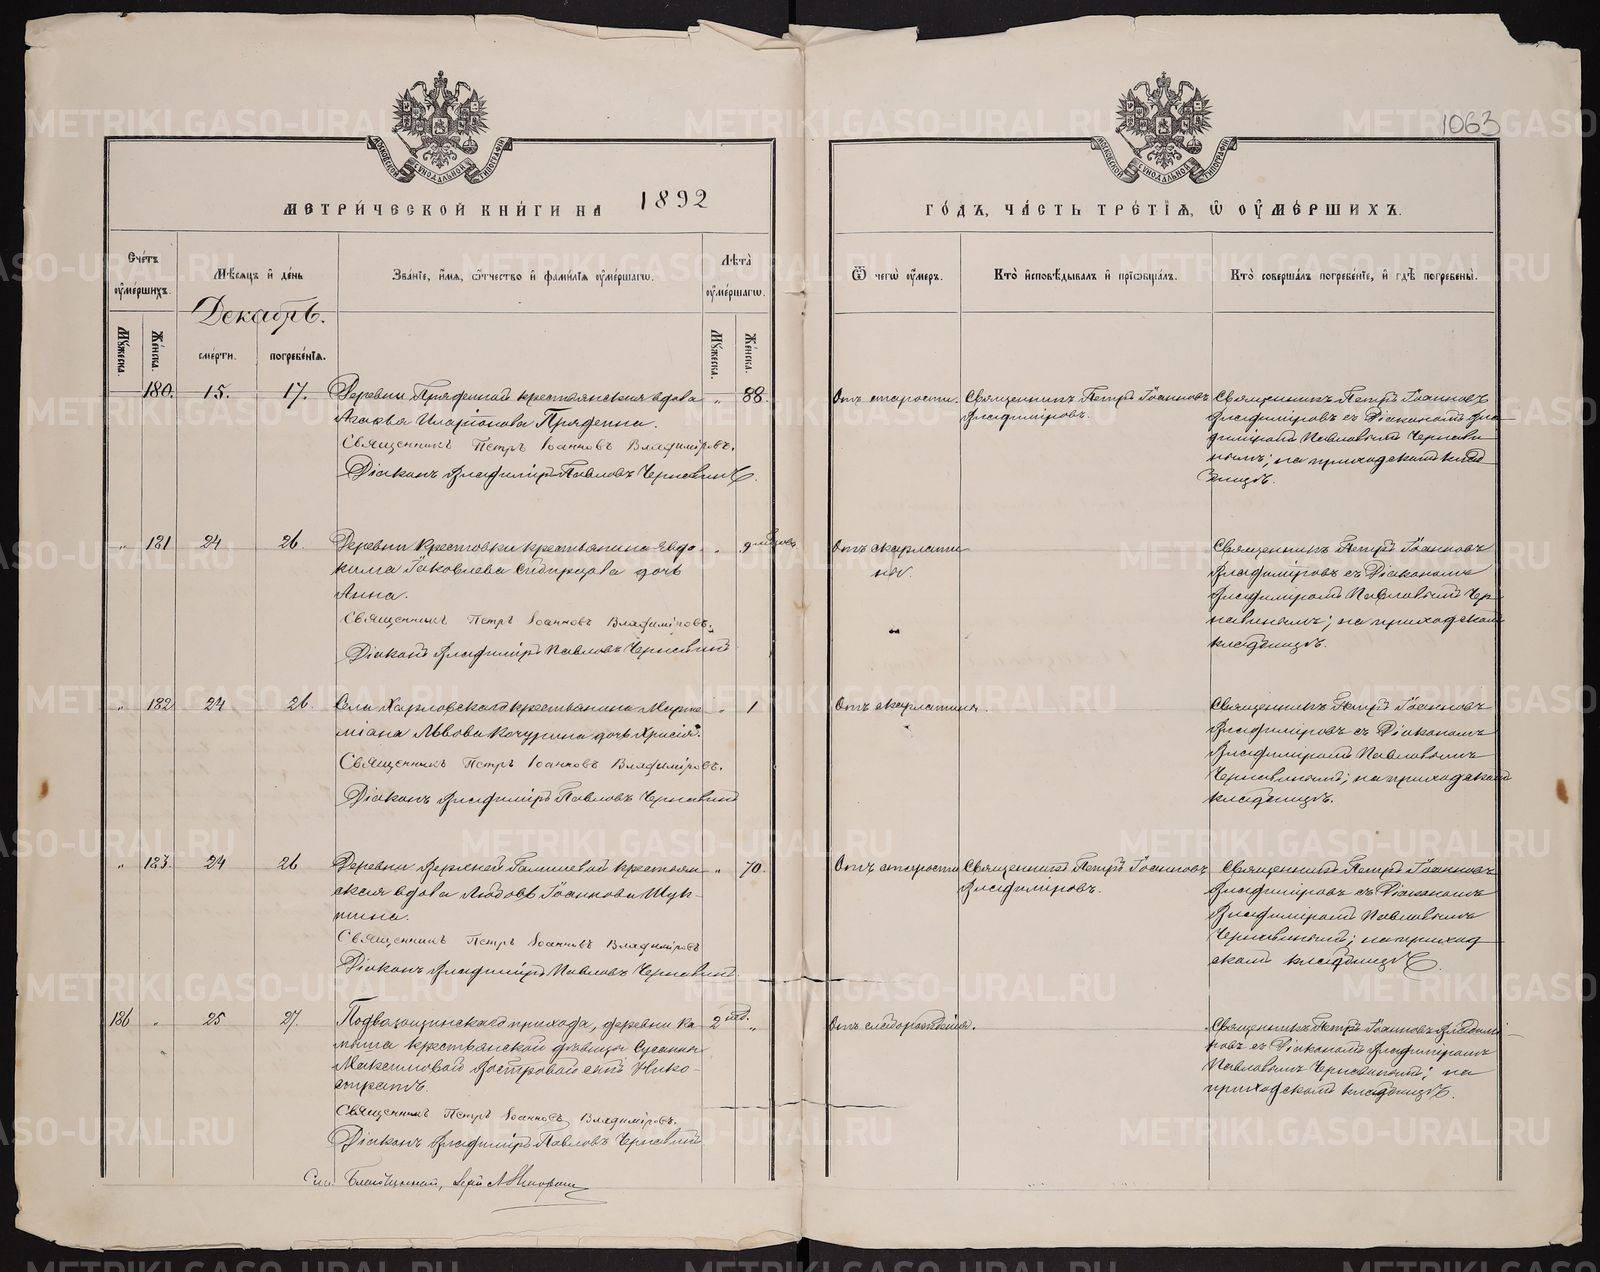 1063
МОСКОВСКОЙ СѴНОДАЛЬНОЙ ТИПОГРАФІИ
МОСКОВСКОЙ СѴНОДАЛЬНОЙ ТИПОГРАФІИ
МЕТРИ́ЧЕСКОЙ КНИ́ГИ НА 1892
ГО́ДЪ, ЧА́СТЬ ТРЕ́ТІѦ, Ѿ ОУ҆МЕ́РШИХЪ.
Счетъ оумершихъ.
Мѣсяцъ и день
Званіе, имя, отчество и фамиліа оумершагѡ.
Лѣта оумершагѡ.
Декабрь.
Мужеска.
Женска.
смерти.
погребеніѧ.
Мужеска.
Женска.
Ѿ чегѡ оумеръ.
Кто исповѣдывалъ и пріѡбщалъ.
Кто совершалъ погребеніе, и гдѣ погребены.
180. 15. 17. Деревни Пряденной крестьянская вдова „ 88
Иларіонова Прядеина.
Священникъ Петръ Іоанновъ Владиміровъ.
Діаконъ Владиміръ Павловъ Чернавинъ.
Отъ старости.
Священникъ Петръ Іоанновъ
Владиміровъ.
Священникъ Петръ Іоанновъ
Владиміровъ съ Діакономъ Вла
диміромъ Павловымъ Чернави
нымъ; на приходскомъ клад
бищѣ.
„ 181 24 26 Деревни Крестовки крестьянина Евдо „ 9 мѣсяцовъ
кима Іаковлева Сибирцова дочь
Анна.
Священникъ Петръ Іоанновъ Владиміровъ.
Діаконъ Владиміръ Павловъ Чернавинъ
Отъ скарлати
ны.
Священникъ Петръ Іоанновъ
Владиміровъ съ Діакономъ
Владиміромъ Павловымъ Чер
навинымъ; на приходскомъ
кладбищѣ.
„ 182 24 26. Села Харловскаго крестьянина „ 1
Львова Кочурина дочь
Священникъ Петръ Іоанновъ Владиміровъ.
Діаконъ Владиміръ Павловъ Чернавинъ
Отъ скарлатины.
Священникъ Петръ Іоанновъ
Владиміровъ съ Діакономъ
Владиміромъ Павловымъ
Чернавинымъ; на приходскомъ
кладбищѣ.
„ 183. 24 26 Деревни Верхней крестьян „ 70.
ская вдова Любовь Іоаннова
Священникъ Петръ Іоанновъ Владиміровъ
Діаконъ Владиміръ Павловъ Чернавинъ
Отъ старости
Священникъ Петръ Іоанновъ
Владиміровъ.
Священникъ Петръ Іоанновъ
Владиміровъ съ Діакономъ
Владиміромъ Павловымъ
Чернавинымъ; на приход
скомъ кладбищѣ.
186 „ 25 27. прихода, деревни Ка 2 „
мыша крестьянской дѣвицы Сусанны
Максимовой Востровой сынъ Нико
стратъ.
Священникъ Петръ Іоанновъ Владиміровъ.
Діаконъ Владиміръ Павловъ Чернавинъ
Отъ слаборожденія.
Священникъ Петръ Іоанновъ Владимі
ровъ съ Діакономъ Владиміромъ
Павловымъ Чернавинымъ; на
приходскомъ кладбищѣ.
METRIKI.GASO-URAL.RU